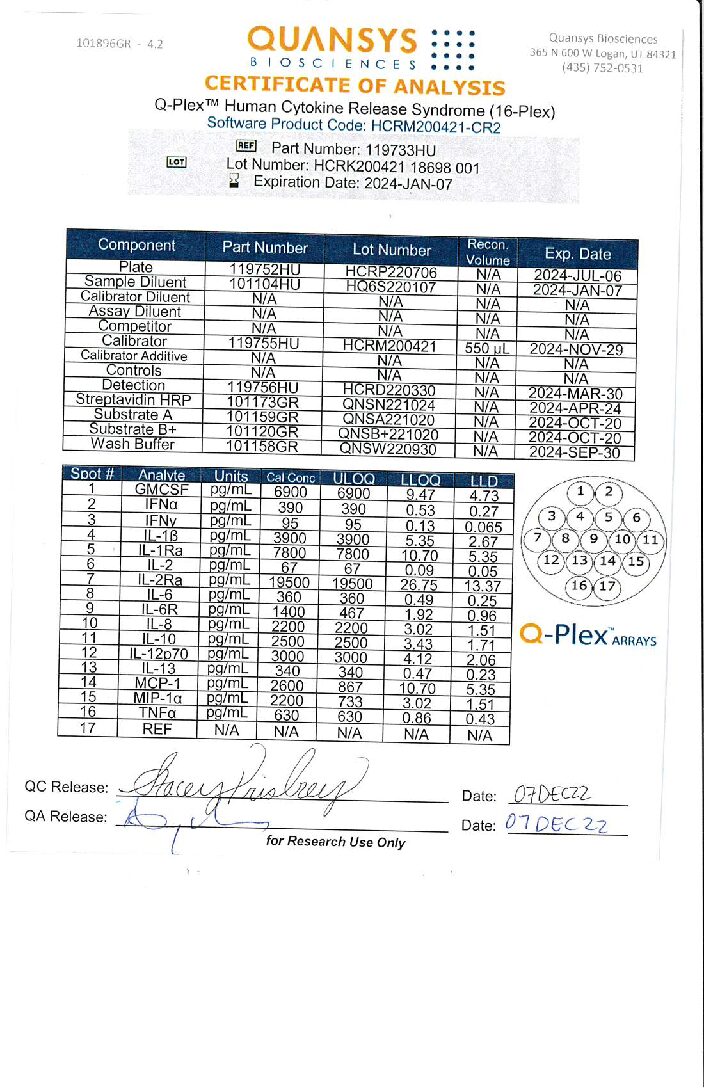 101896GR - 4.2
QUANSYS
BIOSCIENCES
Quansys Biosciences
365 N 600 W Logan, UT 84321
(435) 752-0531
CERTIFICATE OF ANALYSIS
Q-Plex™ Human Cytokine Release Syndrome (16-Plex)
Software Product Code: HCRM200421-CR2
REF Part Number: 119733HU
LOT Lot Number: HCRK200421 18698 001
Expiration Date: 2024-JAN-07
Component Part Number Lot Number Recon. Volume Exp. Date
Plate 119752HU HCRP220706 N/A 2024-JUL-06
Sample Diluent 101104HU HQ6S220107 N/A 2024-JAN-07
Calibrator Diluent N/A N/A N/A N/A
Assay Diluent N/A N/A N/A N/A
Competitor N/A N/A N/A N/A
Calibrator 119755HU HCRM200421 550 µL 2024-NOV-29
Calibrator Additive N/A N/A N/A N/A
Controls N/A N/A N/A N/A
Detection 119756HU HCRD220330 N/A 2024-MAR-30
Streptavidin HRP 101173GR QNSN221024 N/A 2024-APR-24
Substrate A 101159GR QNSA221020 N/A 2024-OCT-20
Substrate B+ 101120GR QNSB+221020 N/A 2024-OCT-20
Wash Buffer 101158GR QNSW220930 N/A 2024-SEP-30
Spot # Analyte Units Cal Conc ULOQ LLOQ LLD
1 GMCSF pg/mL 6900 6900 9.47 4.73
2 IFNα pg/mL 390 390 0.53 0.27
3 IFNγ pg/mL 95 95 0.13 0.065
4 IL-1ß pg/mL 3900 3900 5.35 2.67
5 IL-1Ra pg/mL 7800 7800 10.70 5.35
6 IL-2 pg/mL 67 67 0.09 0.05
7 IL-2Ra pg/mL 19500 19500 26.75 13.37
8 IL-6 pg/mL 360 360 0.49 0.25
9 IL-6R pg/mL 1400 467 1.92 0.96
10 IL-8 pg/mL 2200 2200 3.02 1.51
11 IL-10 pg/mL 2500 2500 3.43 1.71
12 IL-12p70 pg/mL 3000 3000 4.12 2.06
13 IL-13 pg/mL 340 340 0.47 0.23
14 MCP-1 pg/mL 2600 867 10.70 5.35
15 MIP-1α pg/mL 2200 733 3.02 1.51
16 TNFα pg/mL 630 630 0.86 0.43
17 REF N/A N/A N/A N/A N/A
1 2
3 4 5 6
7 8 9 10 11
12 13 14 15
16 17
Q-Plex™ ARRAYS
QC Release: Date: 07DEC22
QA Release: Date: 07 DEC 22
for Research Use Only